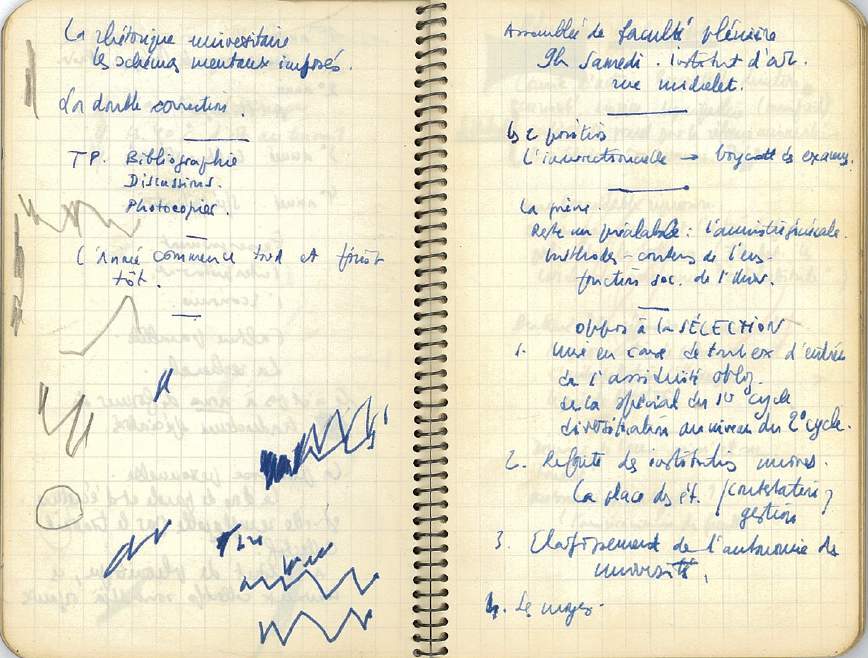 La rhétorique universitaire
les schémas mentaux imposés.
La double correction.
TP. Bibliographie
Discussions.
Photocopies.
L'Année commence tard et finit
tôt.
Assemblée de faculté plénière
9h Samedi. institut d'art.
rue michelet.
les 2 positions
L'insurrectionnelle → boycott des examens.
La
Reste un préalable : l'amnistie générale.
méthodes - contenu de l'ens-
fonction soc. de l'
oppos à la SÉLECTION
1. mise en cause de tout ex d'entrée
de l'assiduité oblig.
de la spécial du 1er cycle
diversification au niveau du 2° cycle.
2. Refonte des institutions univers.
La place des ét. / contestation,
gestion
3. Elargissement de l'autonomie des
universités,
4. Le